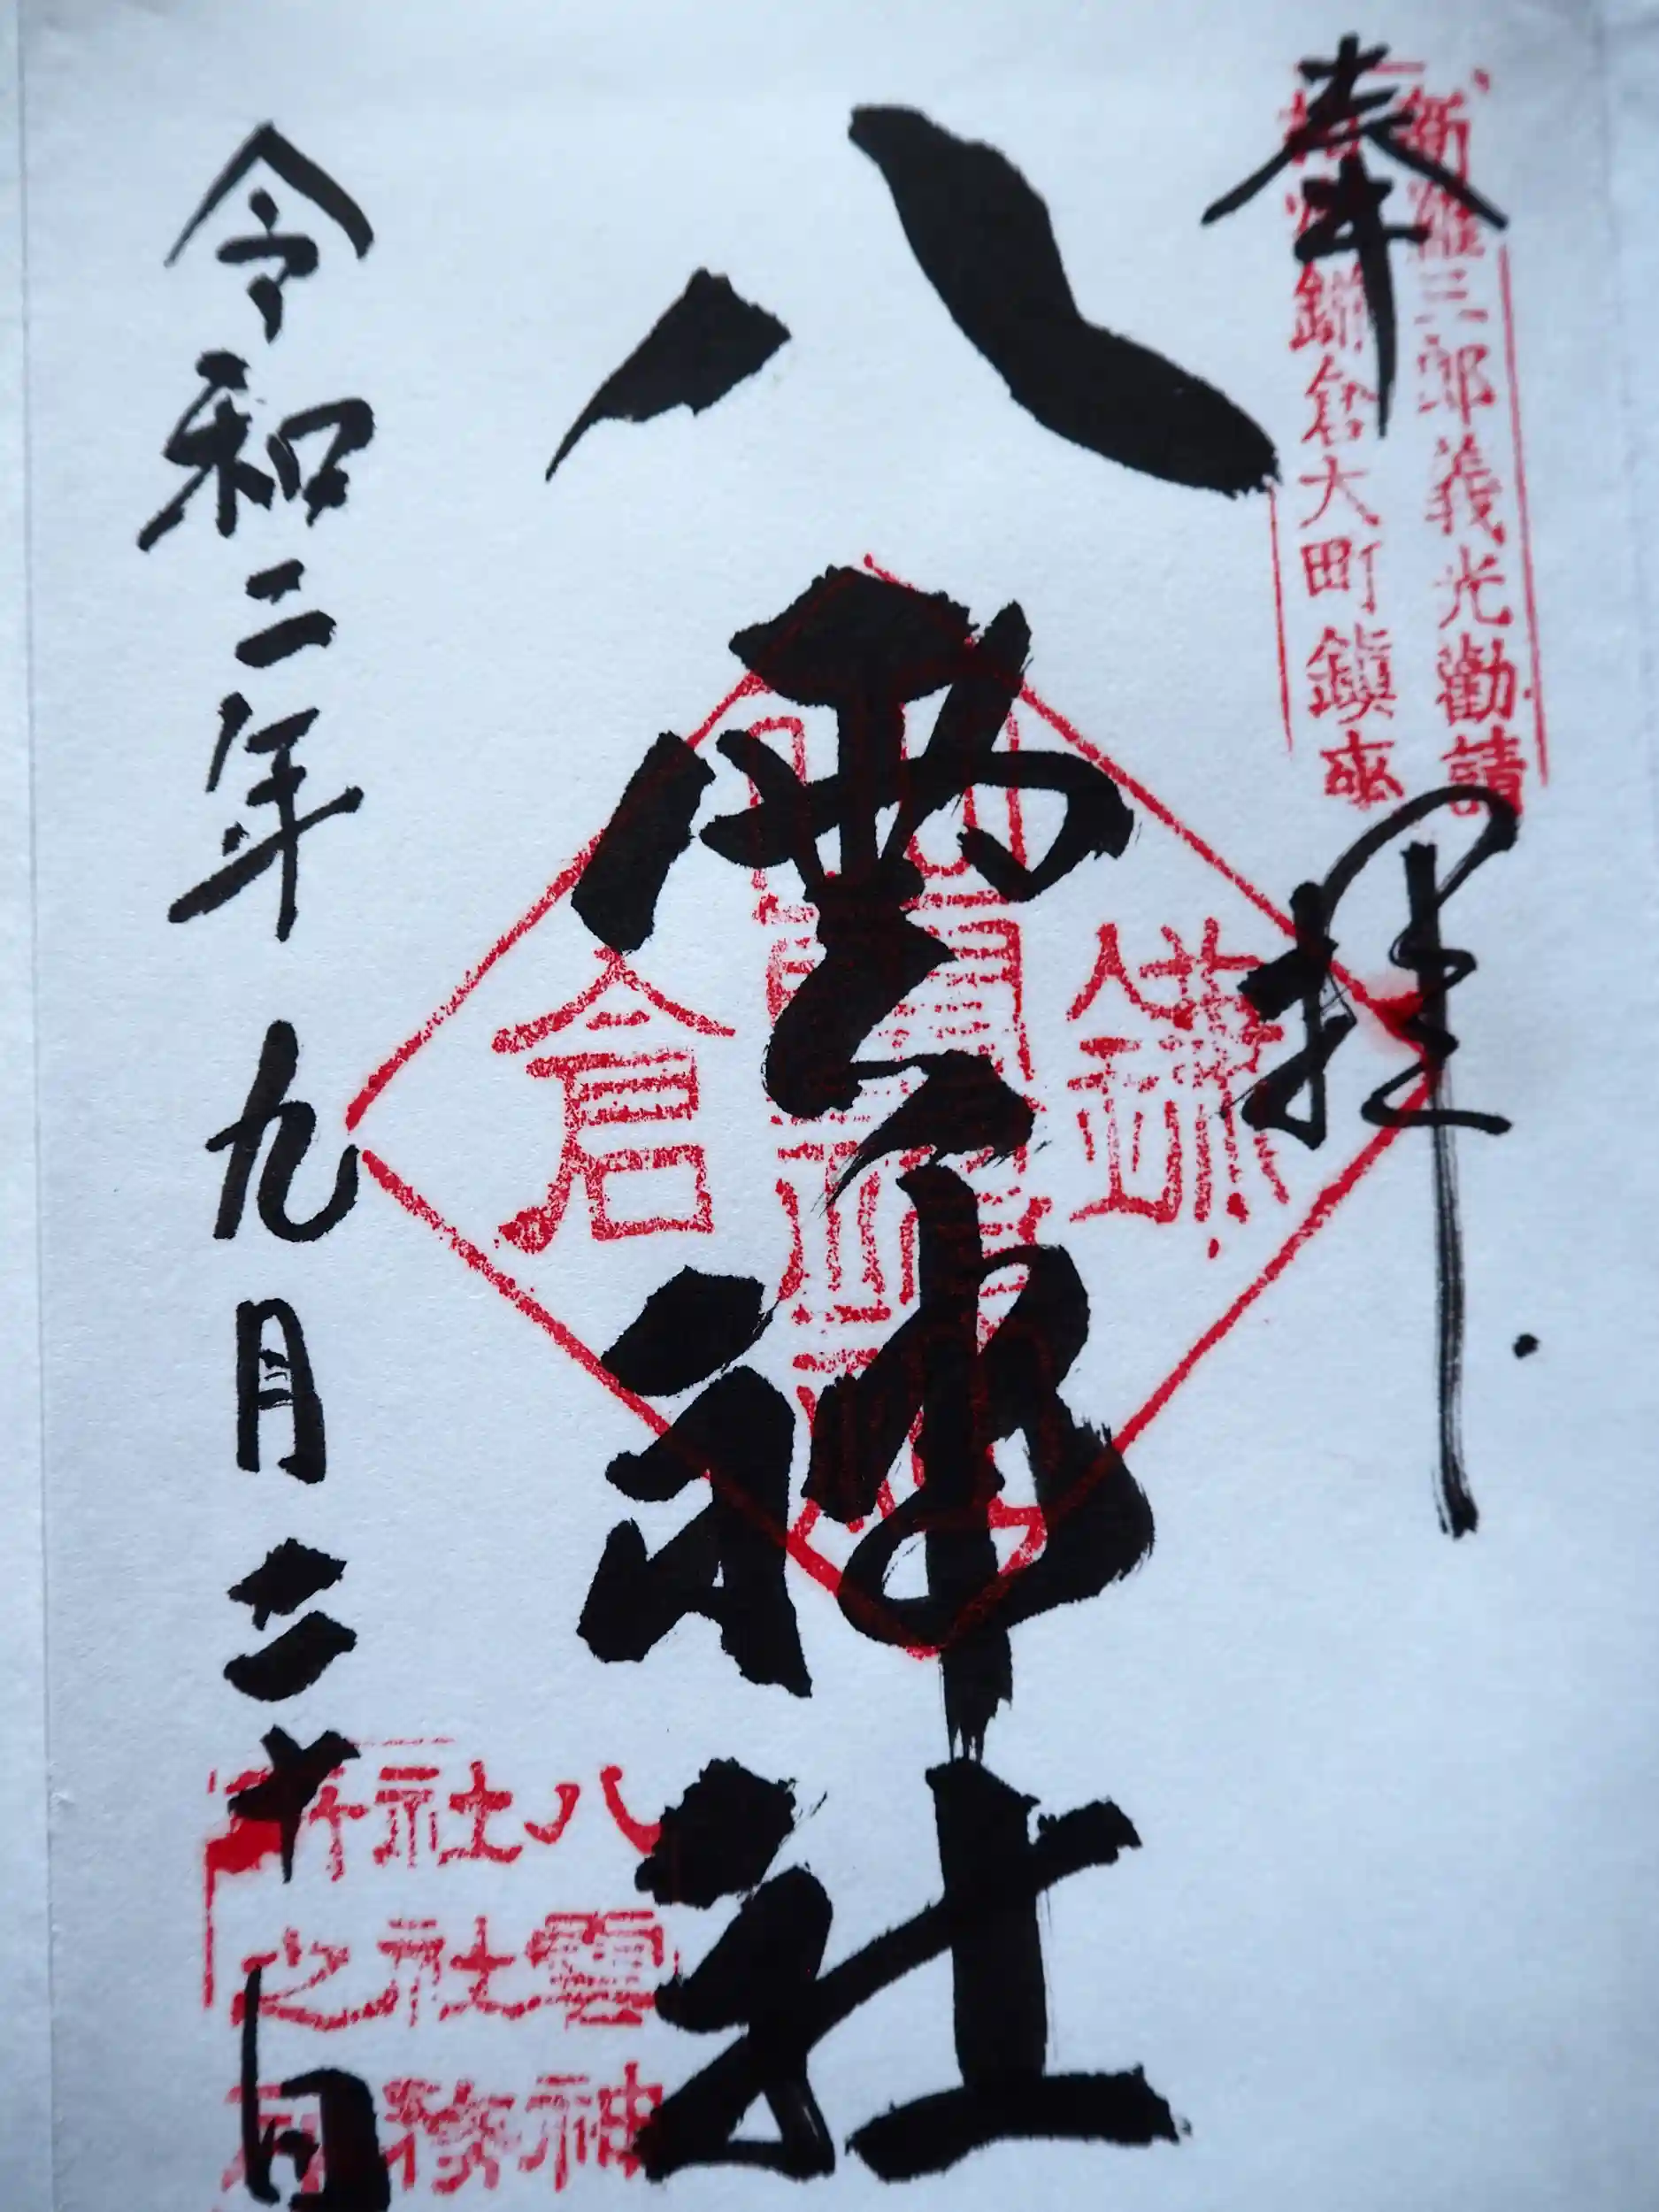 奉拝
新羅三郎義光勸請
相州鎌倉大町鎭座
八雲神社
鎌倉
令和二年九月二十日
八雲神
社社務
所之印